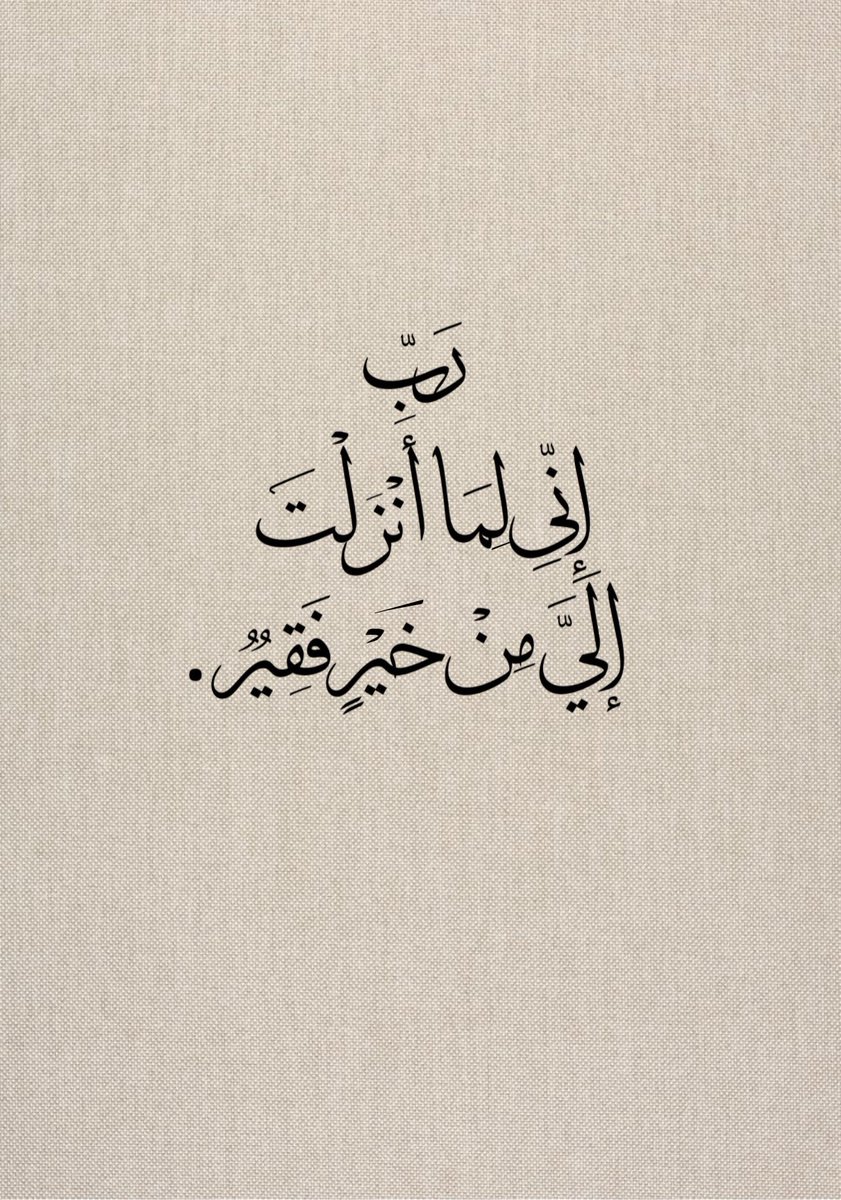 رَبِّ
إِنِّي لِمَا أَنْزَلْتَ
إِلَيَّ مِنْ خَيْرٍ فَقِيرٌ.